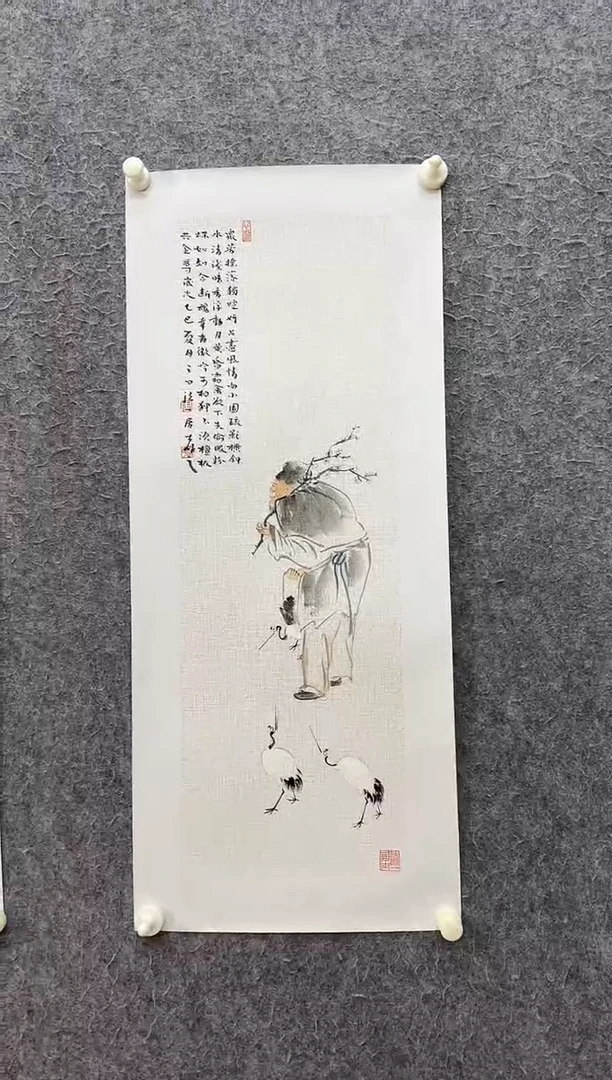 眾芳摇落獨暄妍占盡風情向小園疏影橫斜
水清淺暗香浮動月黃昏霜禽欲下先偷眼粉
蝶如知合斷魂幸有微吟可相狎不須檀板
共金尊歲次乙巳夏月